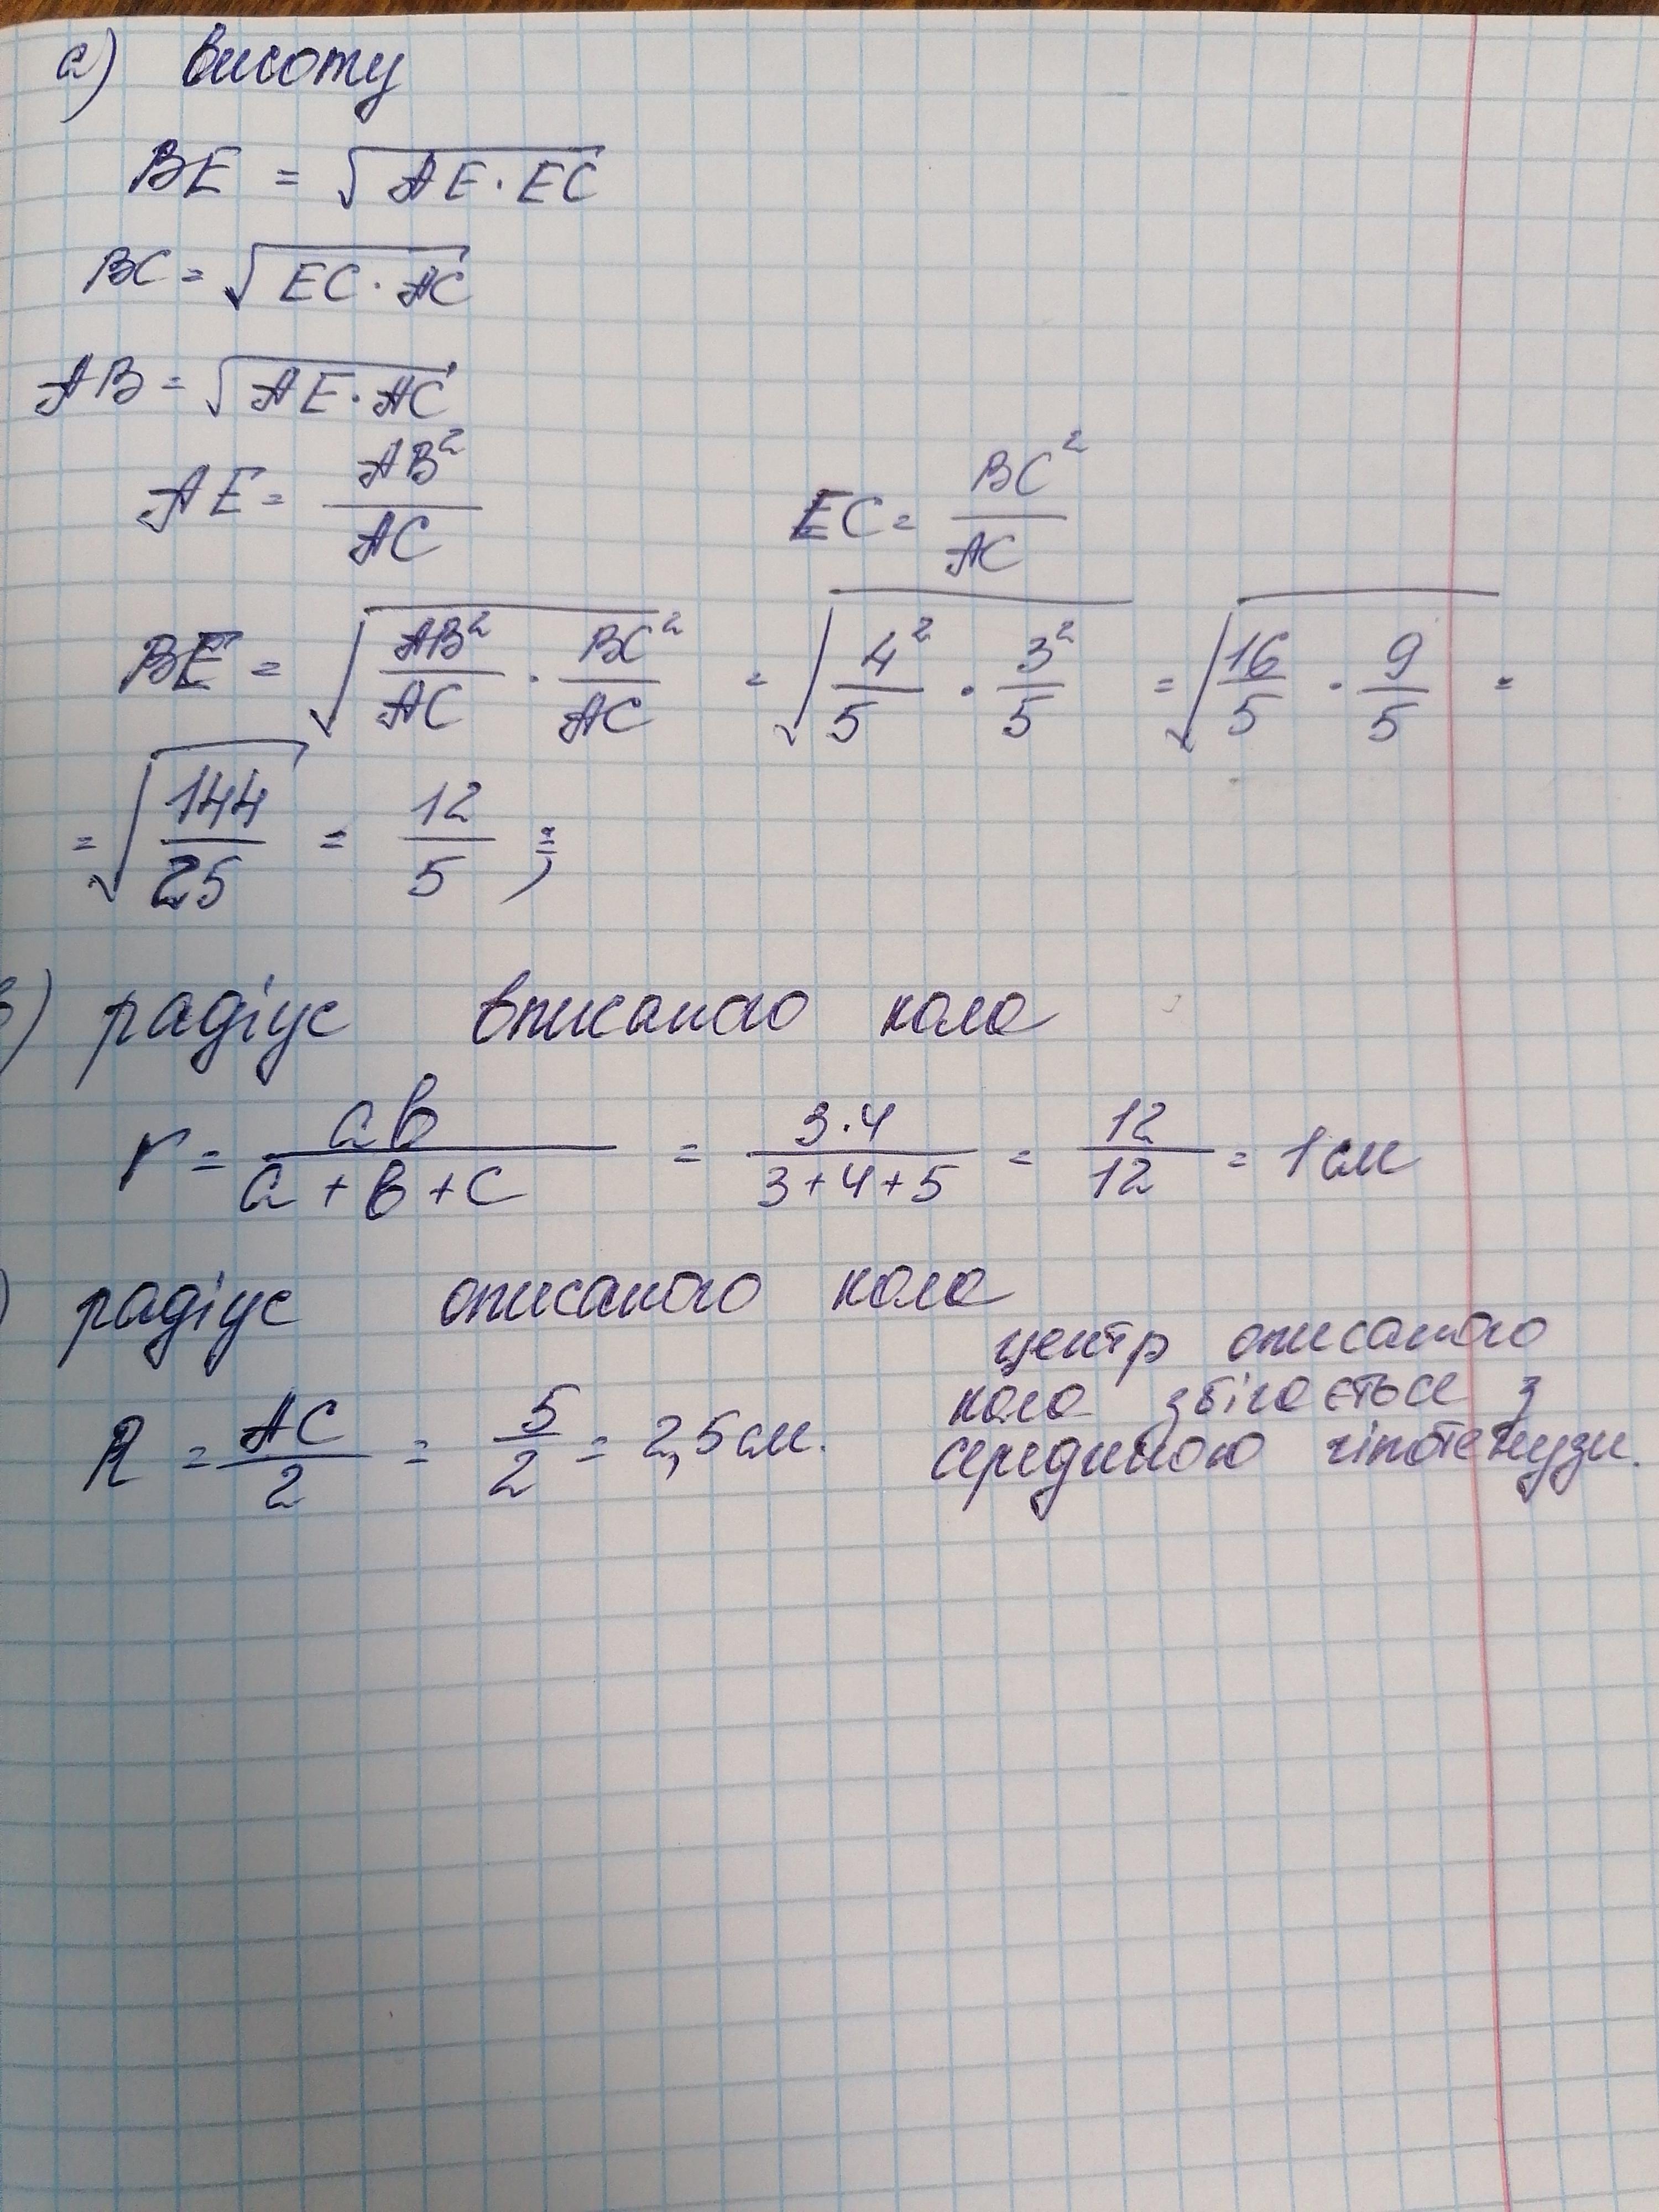 а) висоту
BE = √(AE · EC)
BC = √(EC · AC)
AB = √(AE · AC)
AE = AB²/AC EC = BC²/AC
BE = √(AB²/AC · BC²/AC) = √(4²/5 · 3²/5) = √(16/5 · 9/5) =
= √(144/25) = 12/5 ;
в) радіус вписаного кола
r = ab/(a + b + c) = 3·4/(3+4+5) = 12/12 = 1 см
) радіус описаного кола
центр описаного
R = AC/2 = 5/2 = 2,5 см. кола збігається з
серединою гіпотенузи.